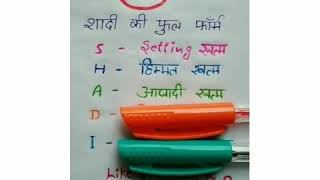 शादी की फुल फॉर्म
S - Setting खत्म
H - हिम्मत खत्म
A - आजादी खत्म
D -
I -
Like